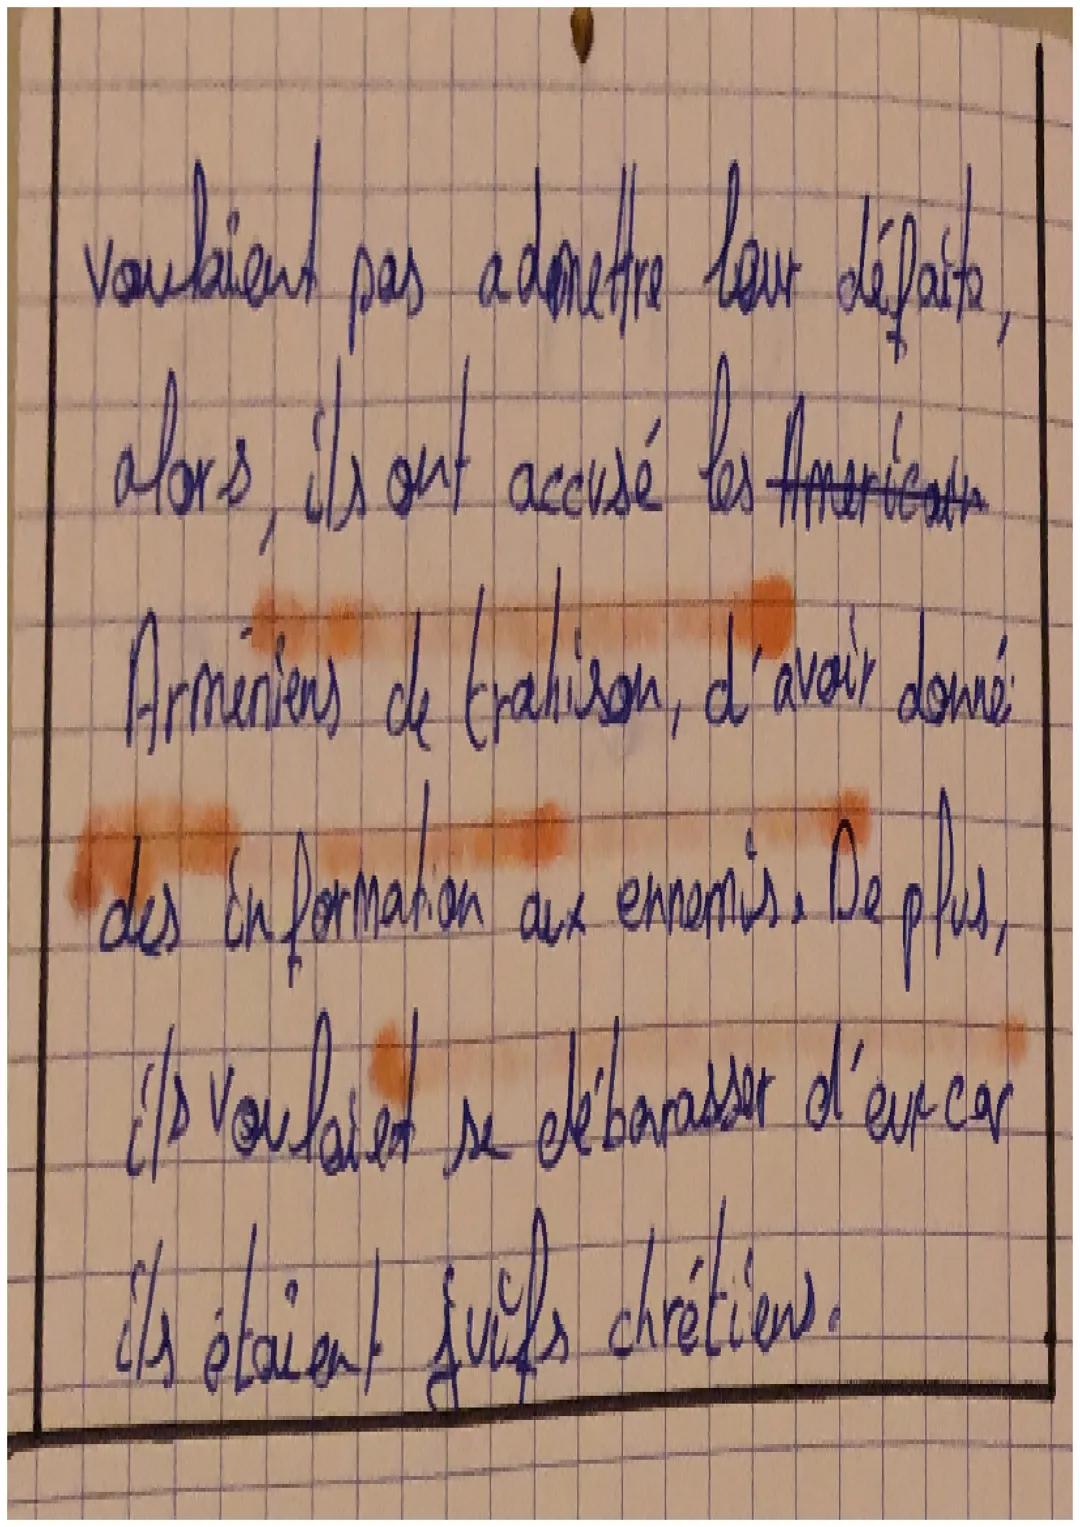 voulaient pas admettre leur défaite,
alors, ils ont accusé les Américain
Arméniens de trahison, d'avoir donné
des information aux ennemis. De plus,
ils voulaient se débarasser d'eux car
ils étaient juifs chrétiens.